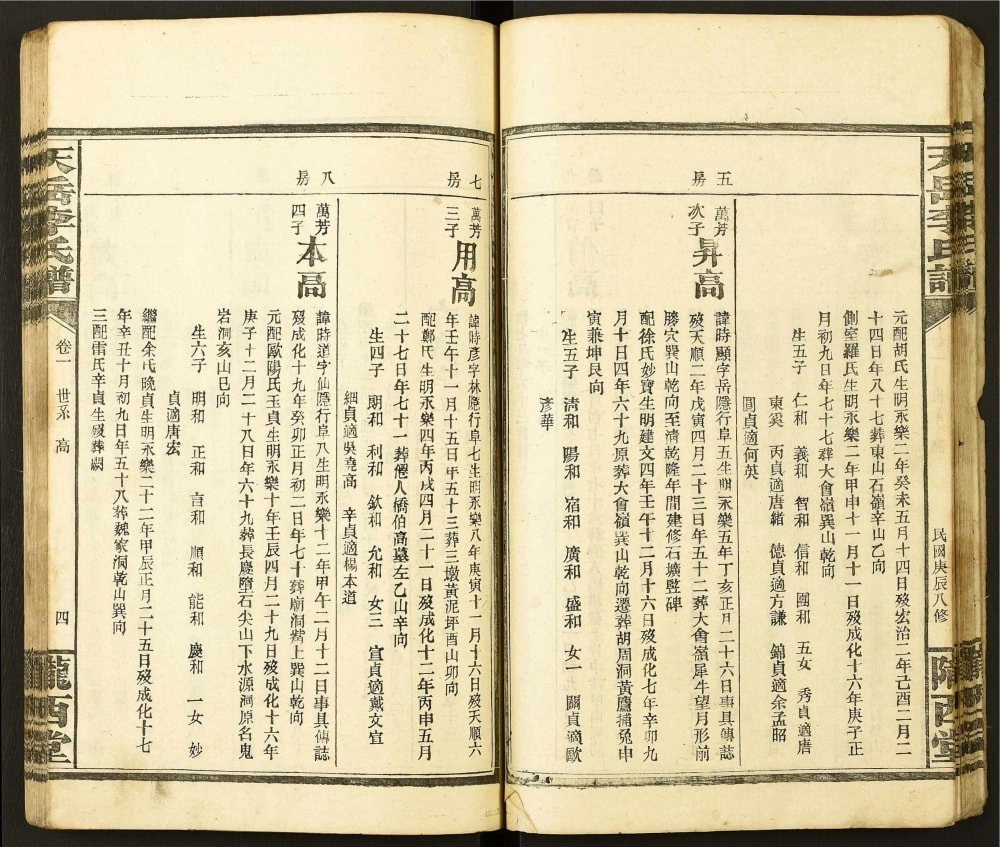 天岳李氏譜
民國庚辰八修
隴西堂
元配胡氏生明永樂二年癸未五月十四日歿宏治二年己酉二月二
十四日年八十七葬東山石嶺辛山乙向
側室羅氏生明永樂二年甲申十一月十一日歿成化十六年庚子正
月初九日年七十七葬大會嶺巽山乾向
生五子 仁和 義和 智和 信和 團和 五女 秀貞適唐
東奚 丙貞適唐緒 德貞適方謙 錦貞適余孟昭
圓貞適何英
五房
萬芳次子
昇高
諱時顯字岳隱行阜五生明永樂五年丁亥正月二十六日事具傳誌
歿天順二年戊寅四月二十三日年五十二葬大會嶺犀牛望月形前
勝穴巽山乾向至清乾隆年間建修石壙竪碑
配徐氏妙寶生明建文四年壬午十二月十六日歿成化七年辛卯九
月十日四年六十九原葬大會嶺巽山乾向遷葬胡周洞黃鷹捕兔申
寅兼坤艮向
生五子 清和 陽和 宿和 廣和 盛和 女一 關貞適歐
彥華
七房
萬芳三子
用高
諱時彥字林隱行阜七生明永樂八年庚寅十一月十六日歿天順六
年壬午十一月十五日年五十三葬三墩黃泥坪酉山卯向
配鄭氏生明永樂四年丙戌四月二十一日歿成化十二年丙申五月
二十七日年七十一葬僊人橋伯高墓左乙山辛向
生四子 朗和 利和 欽和 允和 女三 宣貞適戴文宣
細貞適吳堯高 辛貞適楊本道
八房
萬芳四子
本高
諱時道字仙隱行阜八生明永樂十二年甲午二月十二日事具傳誌
歿成化十九年癸卯正月初二日年七十葬廟洞嘴上巽山乾向
元配歐陽氏玉貞生明永樂十年壬辰四月二十九日歿成化十六年
庚子十二月二十八日年六十九葬長慶墮石尖山下水源洞原名鬼
岩洞亥山巳向
生六子 明和 正和 言和 順和 能和 慶和 一女 妙
貞適唐宏
繼配余氏晚貞生明永樂二十二年甲辰正月二十五日歿成化十七
年辛丑十月初九日年五十八葬魏家洞乾山巽向
三配雷氏辛貞生歿葬闕
天岳李氏譜
卷一 世系 高
四
隴西堂